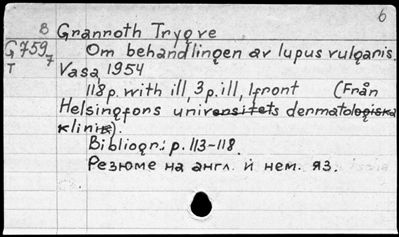 6
B Granroth Trygve
G759 Om behandlingen av lupus vulgaris.
7
T Vasa 1954
118 p. with ill, 3 p. ill, 1 front (Från
Helsingfors universitets dermatologiska
klinik).
Bibliogr.: p. 113-118.
Резюме на англ. и нем. яз.